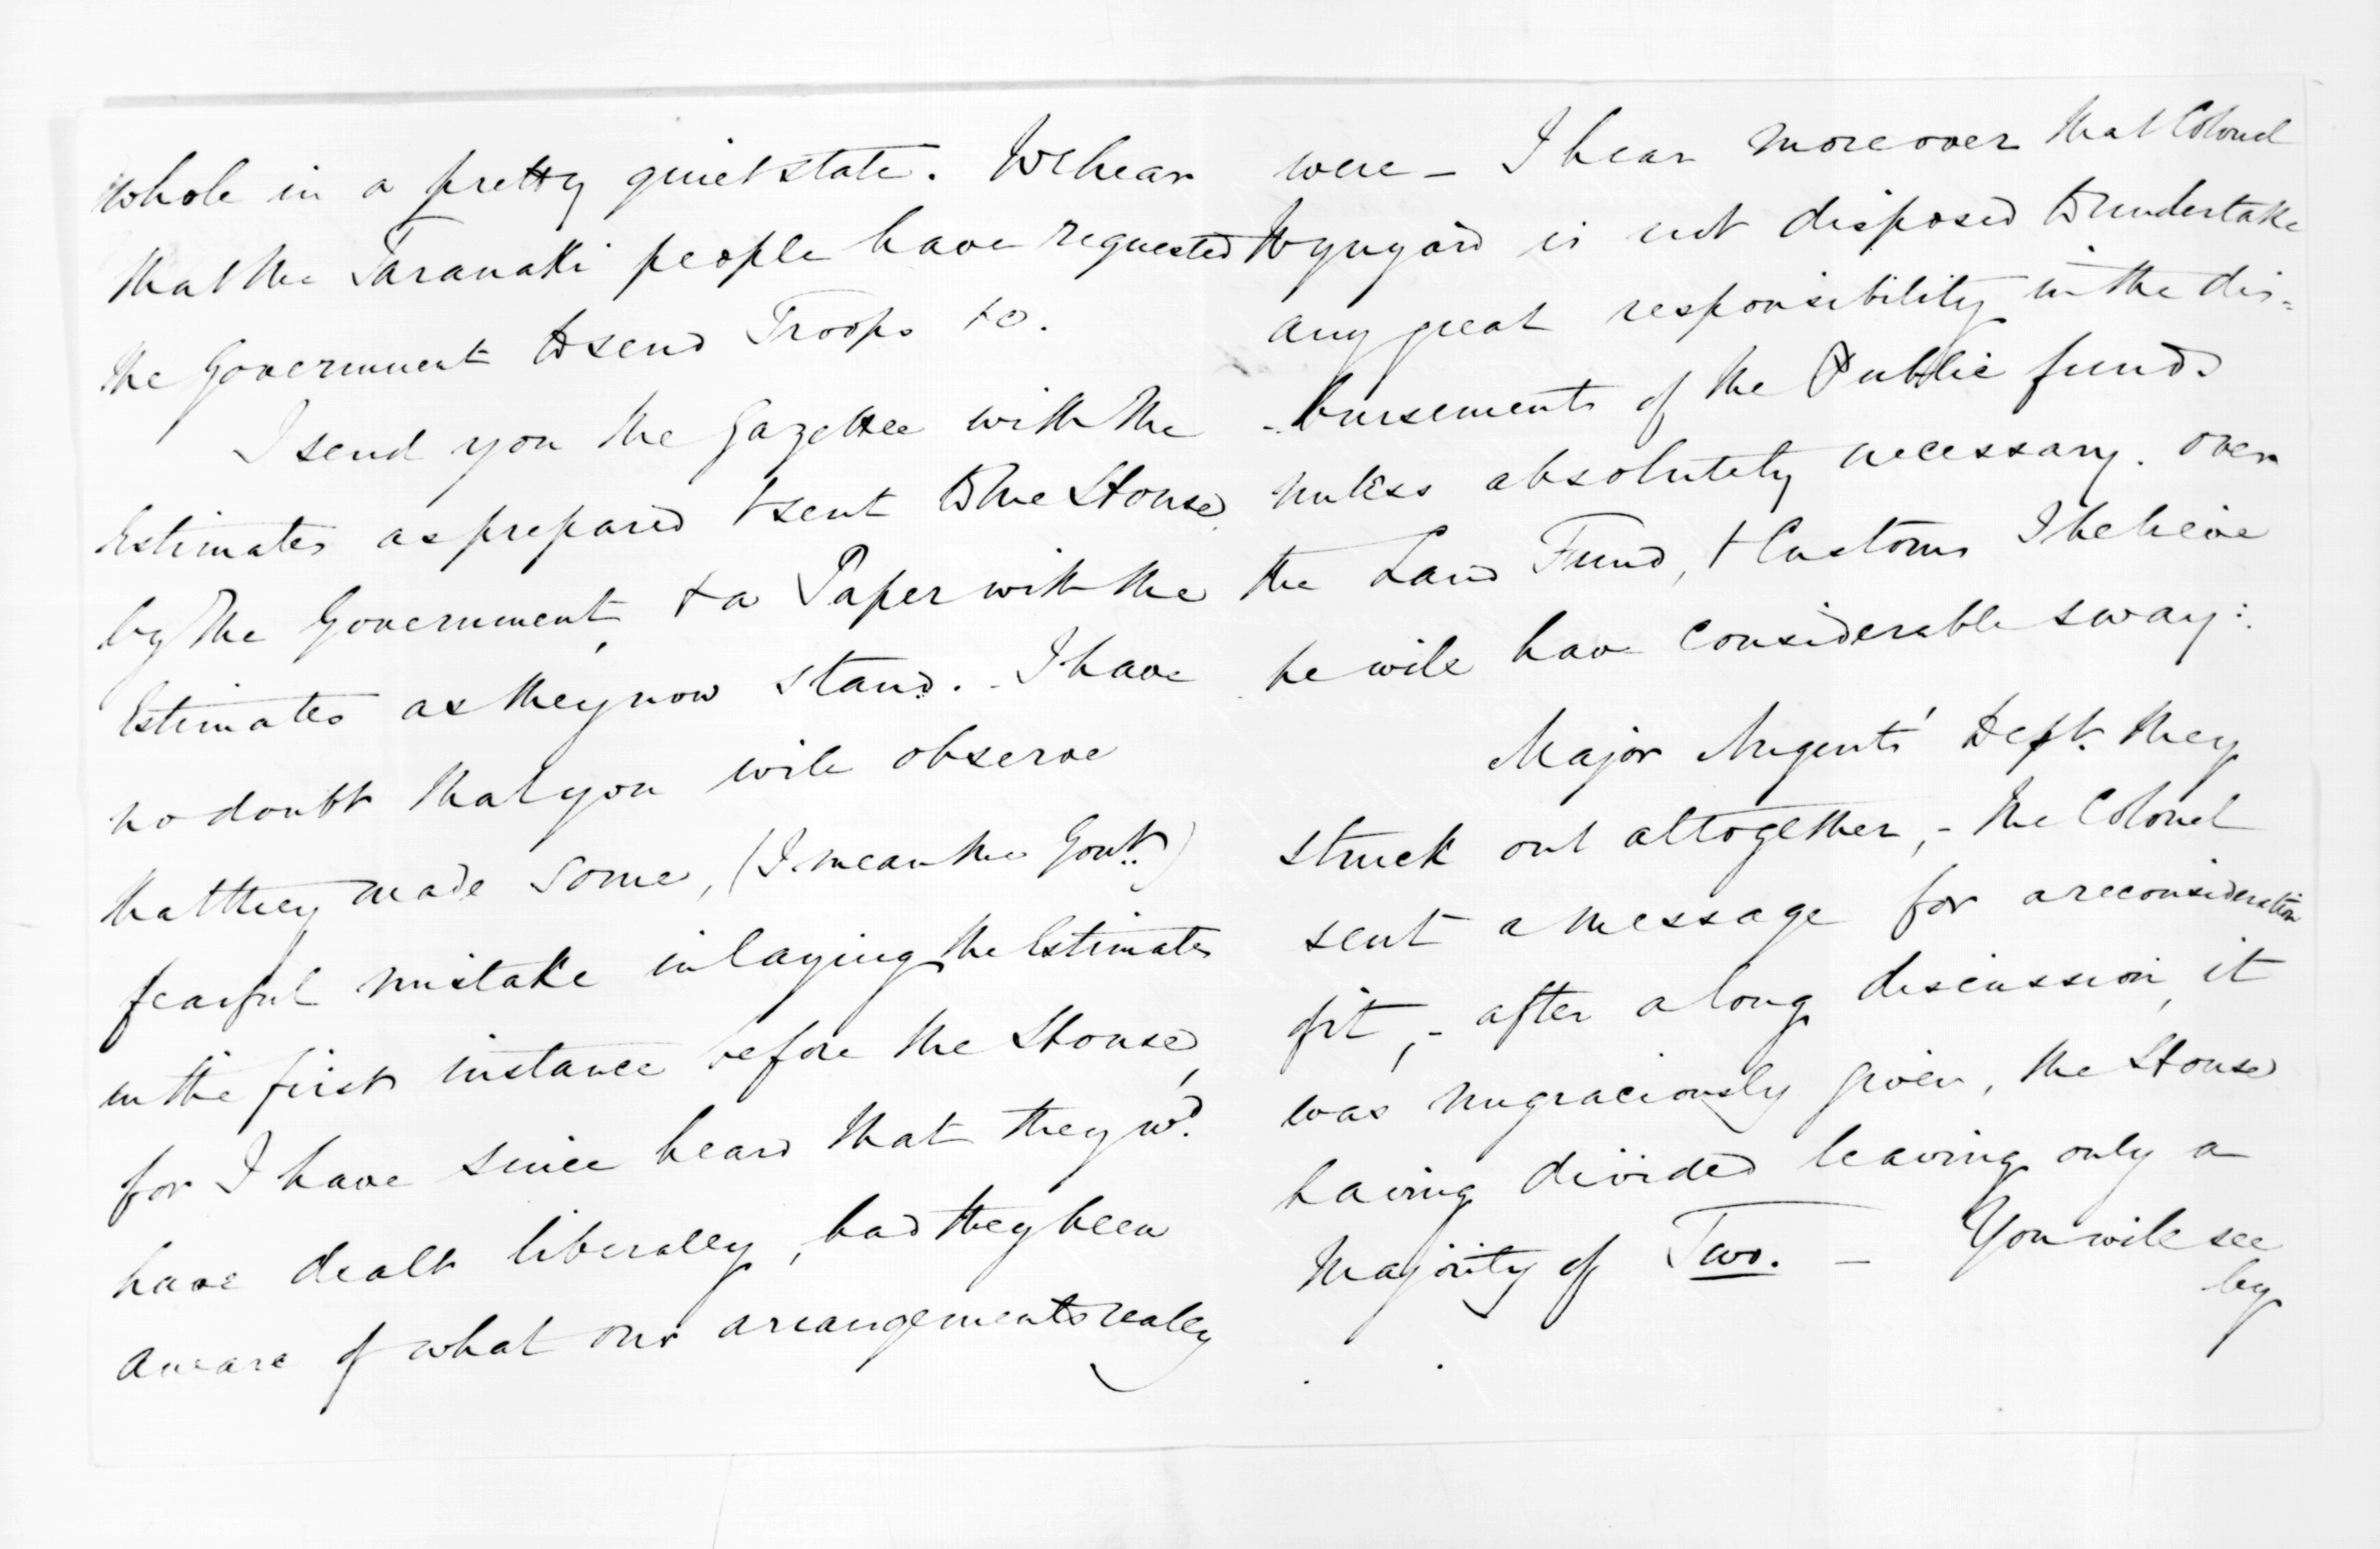 whole in a pretty quiet state. We hear
that the Taranaki people have requested
the Government to send Troops &c.
I send you the Gazettee with the
Estimates as prepared & sent to the House
by the Government, & a Paper with the
Estimates as they now stand. - I have
no doubt that you will observe
that they made some, (I mean the Govt.)
fearful mistake in laying the Estimates
in the first instance before the House,
for I have since heard that they wd.
have dealt liberally, had they been
aware of what our arrangements really
were - I hear moreover that Colonel
Wynyard is not disposed to undertake
any great responsibility in the dis=
-bursements of the Public funds
unless absolutely necessary. over
the Land Fund, & Customs I believe
he will have considerable sway:
Major Nugents' Dept. they
struck out altogether, - the Colonel
sent a message for a reconsideration
of it, - after a long discussion, it
was ungraciously given, the House
having divided leaving only a
Majority of Two. - You will see
by